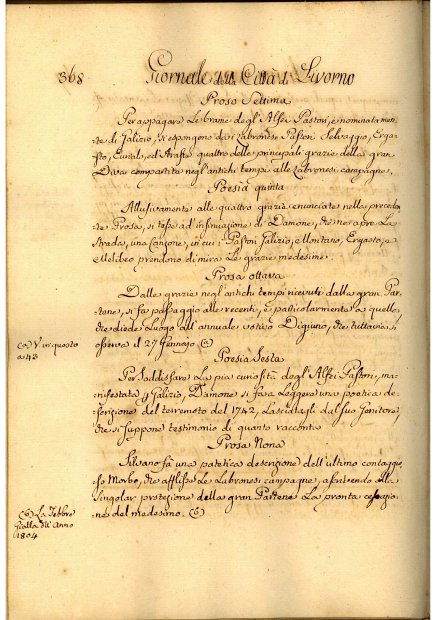 368 Giornale della Città di Livorno
Prosa Settima
Per appagare le brame degli Alfei Pastori, e nominatamen-
te di Galizio, si espongono dai Labronesi Pastori Selvaggio, Erga-
sto, ed quattro delle principali grazie della gran
Diva compartite negl'antichi tempi alle Labronesi campagne.
Poesia quinta
Allusivamente alle quattro grazie enunciate nella preceden-
te Prosa, si tesse ad insinuazione di Damone, che ne apre la
strada, una Canzone, in cui i Pastori Galizio, Montano, Ergasto, e
Melibeo prendono di mira le grazie medesime.
Prosa ottava
Dalle grazie negl'antichi tempi ricevute dalla gran Par-
tene, si fa passaggio alle recenti, e particolarmente a quelle,
che diede luogo all'annuale votivo Digiuno, che tuttavia si
osserva il 27 Gennajo (a)
(a) V in questo
a 43
Poesia Sesta
Per soddisfare la pia curiosità degl'Alfei Pastori, ma-
nifestata da Galizio, Damone si fa a leggere una poetica de-
scrizione del terremoto del 1742, lasciatagli dal suo Genitore,
che si suppone testimonio di quanto racconta
Prosa Nona
Silvano fà una patetica descrizione dell'ultimo contaggio-
so Morbo, che afflisse le Labronesi campagne, ascrivendo alla
singolar protezione della gran Partene la pronta cessazio-
ne del medesimo. (b)
(b) La Febbre
gialla dell'anno
1804